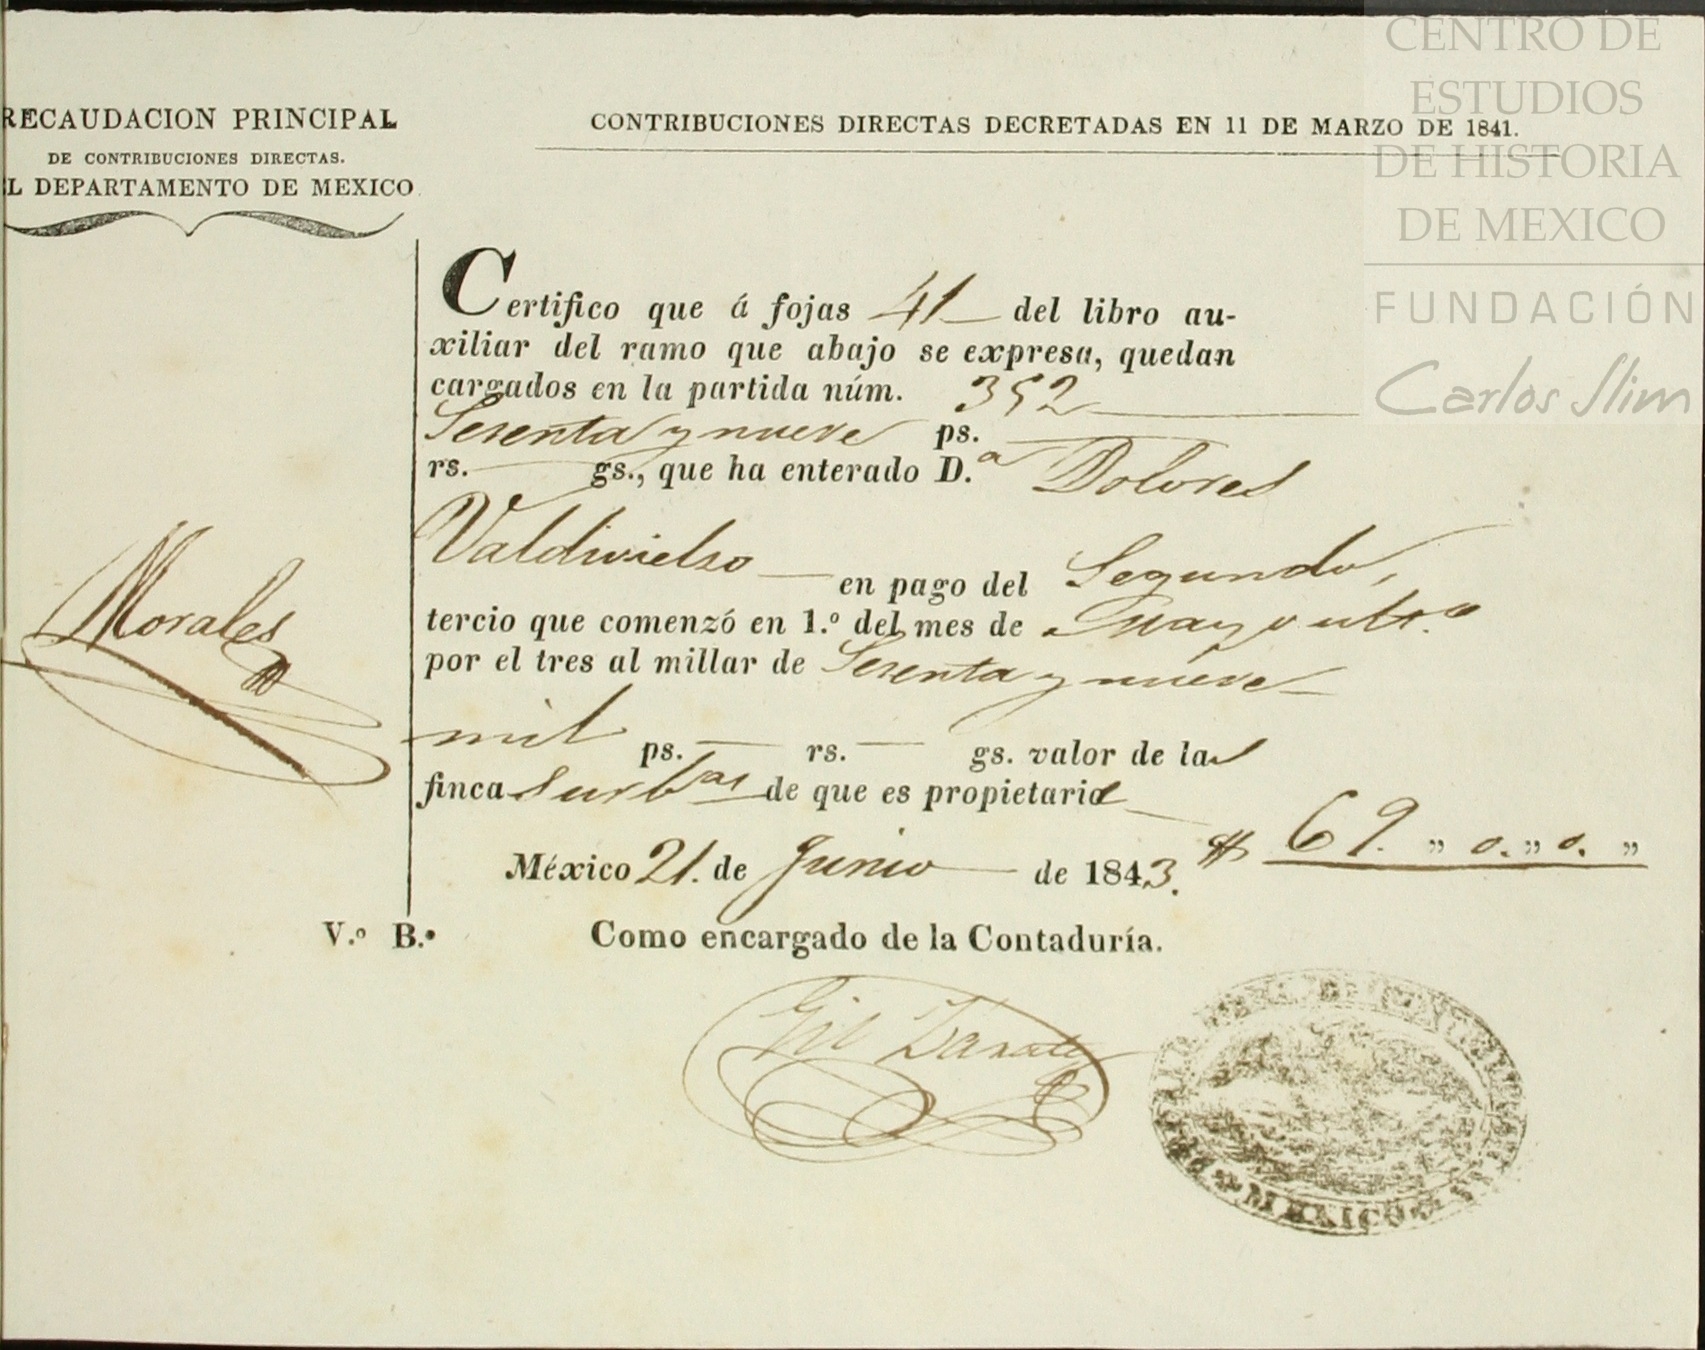 RECAUDACION PRINCIPAL
DE CONTRIBUCIONES DIRECTAS.
L DEPARTAMENTO DE MEXICO
CONTRIBUCIONES DIRECTAS DECRETADAS EN 11 DE MARZO DE 1841.
CENTRO DE
ESTUDIOS
DE HISTORIA
DE MEXICO
FUNDACIÓN
Carlos Slim
Certifico que á fojas 41 del libro au-
xiliar del ramo que abajo se expresa, quedan
cargados en la partida núm. 352
Sesenta y nueve ps.
rs. gs., que ha enterado D.ª Dolores
Valdivielso en pago del Segundo,
tercio que comenzó en 1.º del mes de Mayo ult.º
por el tres al millar de Sesenta y nueve
mil ps. rs. gs. valor de las
fincas urb.as de que es propietaria
$ 69. ,, 0. ,, 0. ,,
México 21. de Junio de 1843.
Morales
V.º B.º Como encargado de la Contaduría.
Gil Zarate
MEXICO